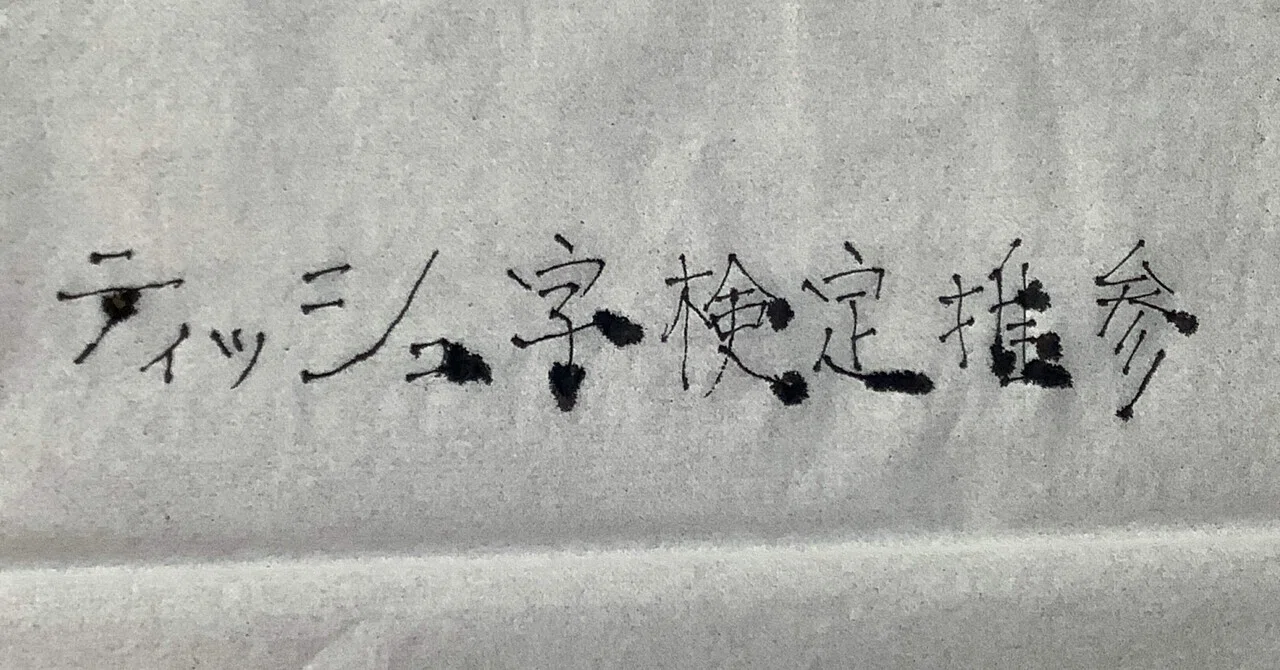 ティッシュ字検定推参